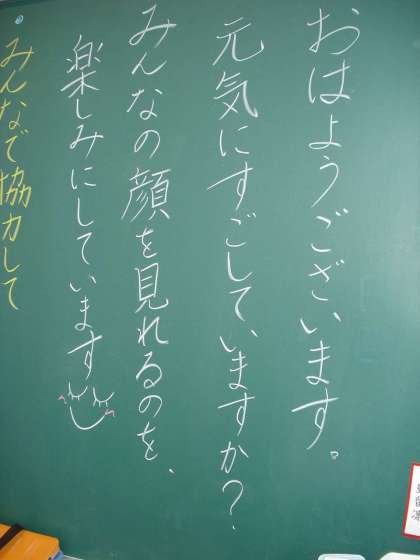 おはようございます。
元気にすごしていますか？
みんなの顔を見れるのを、
楽しみにしています
みんなで協力して